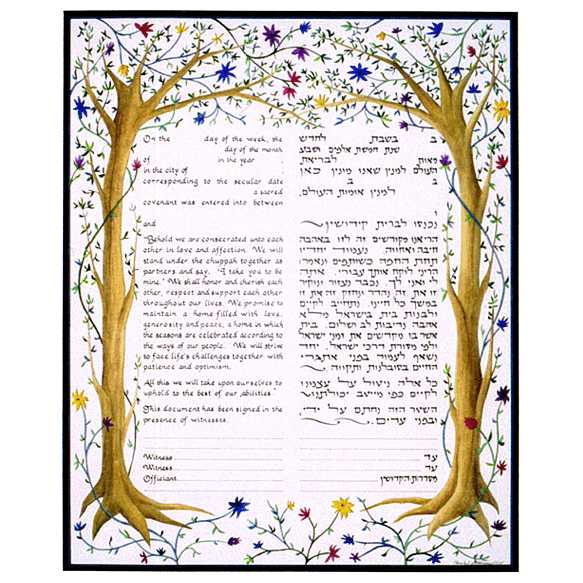 On the day of the week, the
day of the month
of in the year .
in the city of
corresponding to the secular date
a sacred
covenant was entered into between
and
"Behold we are consecrated unto each
other in love and affection. We will
stand under the chuppah together as
partners and say, "I take you to be
mine." We shall honor and cherish each
other, respect and support each other
throughout our lives. We promise to
maintain a home filled with love,
generosity and peace, a home in which
the seasons are celebrated according to
the ways of our people. We will strive
to face life's challenges together with
patience and optimism.
All this we will take upon ourselves to
uphold to the best of our abilities."
This document has been signed in the
presence of witnesses.
Witness
Witness
Officiant
ב בשבת לחדש
שנת חמשת אלפים ושבע
מאות לבריאת
העולם למנין שאנו מונין כאן
ב ב
למנין אומות העולם.
ו
נכנסו לברית קידושין
הרי אנו מקודשים זה לזו באהבה
וחיבה ואחוה. נעמוד יחדיו
תחת החופה כשותפים ונאמר:
הריני לוקח אותך עבורי. אתה
לי ואני לך. נכבד נעזור ונוקיר
זה את זה
במשך כל חיינו. נתחייב לקיים
ולבנות בית בישראל מלא
אהבה נדיבות לב ושלום. בית
אשר מקדשים בו זמני ישראל
ולפי מסורת דרכי ישראל. יחד
נשאף לעמוד בפני אתגרי
החיים בסובלנות ותקווה.
כל אלה ניטול על עצמנו
לקיים כפי מיטב יכולתנו.
השטר הזה נחתם על ידי,
ובפני עדים.
עד
עד
מסדר/ת הקדושין